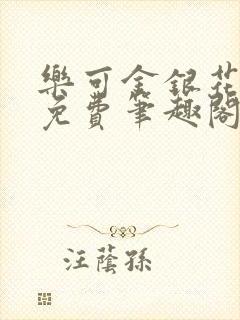 樂可金銀花
免費筆趣閣
汪蔭孫